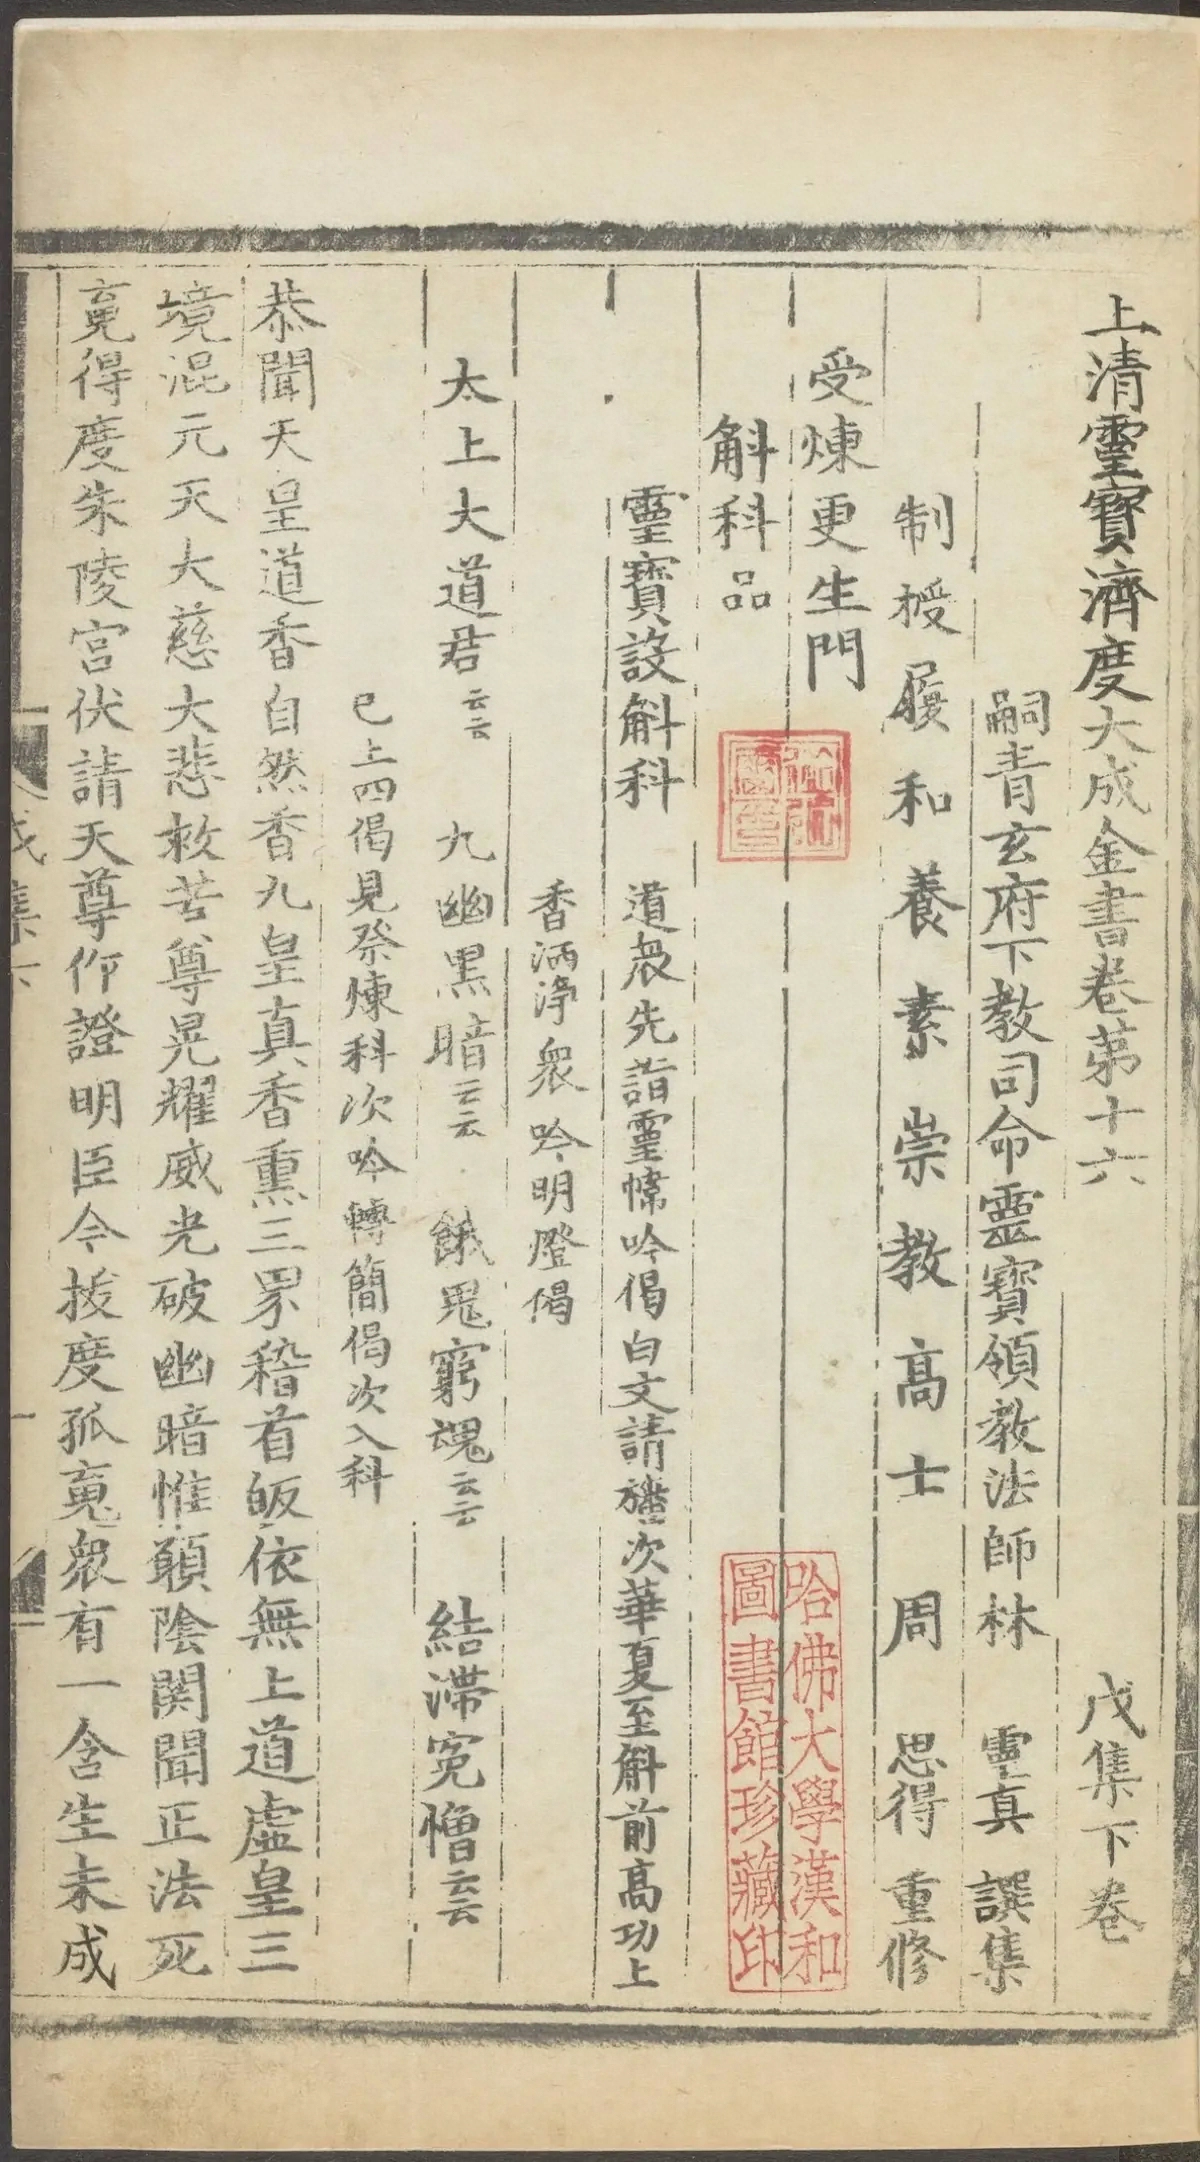 上清靈寶濟度大成金書卷第十六　戊集下卷
嗣青玄府下教司命靈寶領教法師林　靈真　譔集
制授履和養素崇教高士　周　思得　重修
受煉更生門
斛科品
靈寶設斛科　道衆先詣靈幃吟偈白文請旛次華夏至斛前高功上
香洒淨衆吟明燈偈
太上大道君云云　九幽黑暗云云　餓鬼窮魂云云　結滯寃憎云云
已上四偈見祭煉科次吟轉簡偈次入科
恭聞天皇道香自然香九皇真香熏三界稽首皈依無上道虛皇三
境混元天大慈大悲救苦尊晃耀威光破幽暗惟願陰関聞正法死
䰟得度朱陵宮伏請天尊作證明臣今拔度孤䰟衆有一含生未成
哈佛大學漢和
圖書館珍藏印